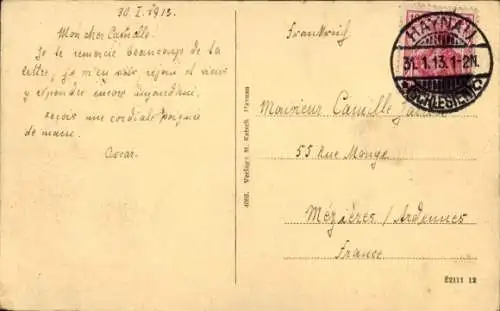 30. I. 1913.
Mon cher Camille.
Je te remercie beaucoup de ta
lettre, je m'en suis réjoui et viens
y répondre encore aujourd'hui.
reçois une cordiale poignée
de main.
Oscar.
4092. Verlag: M. Kutsch, Haynau
Frankreich
HAYNAU
31.1.13.1-2N.
(SCHLESIEN)
Monsieur Camille
55 Rue Monge
Mézières / Ardennes
France
E2111 12